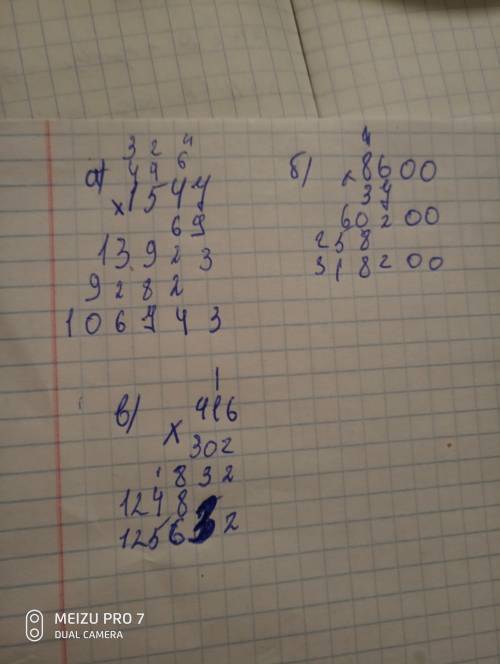 3 2 4
а) 4 4 6
x 1547
69
13923
9282
106743
б) 4
x 8600
37
60200
258
318200
1
в) 416
x
302
1 832
1248
125632
MEIZU PRO 7
DUAL CAMERA